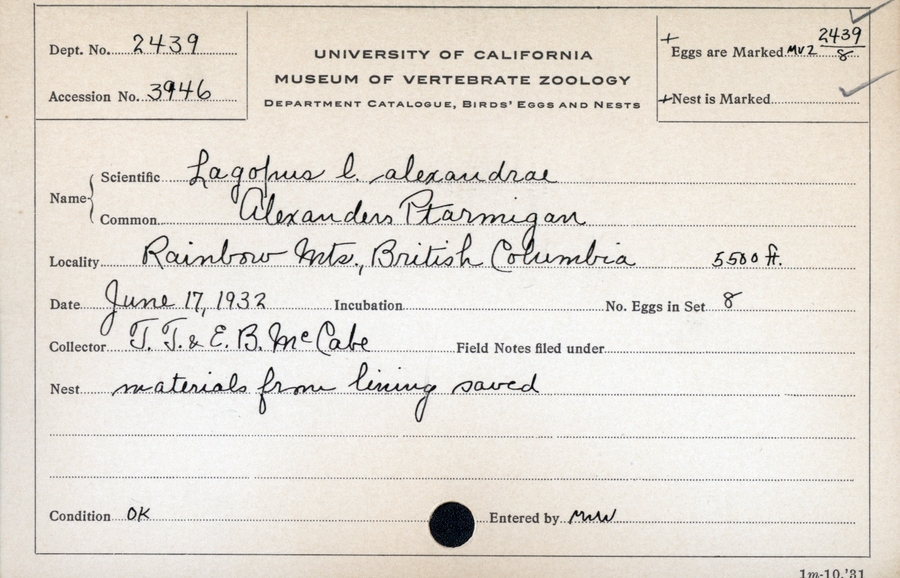 Dept. No. 2439
Accession No. 3946
UNIVERSITY OF CALIFORNIA
MUSEUM OF VERTEBRATE ZOOLOGY
DEPARTMENT CATALOGUE, BIRDS' EGGS AND NESTS
+ Eggs are Marked MVZ 2439/8
+ Nest is Marked
Name { Scientific Lagopus l. alexandrae
Common Alexanders Ptarmigan
Locality Rainbow Mts., British Columbia 5500 ft.
Date June 17, 1932 Incubation No. Eggs in Set 8
Collector T. T. & E. B. McCabe Field Notes filed under
Nest materials from lining saved
Condition OK Entered by MWW
1m-10,'31